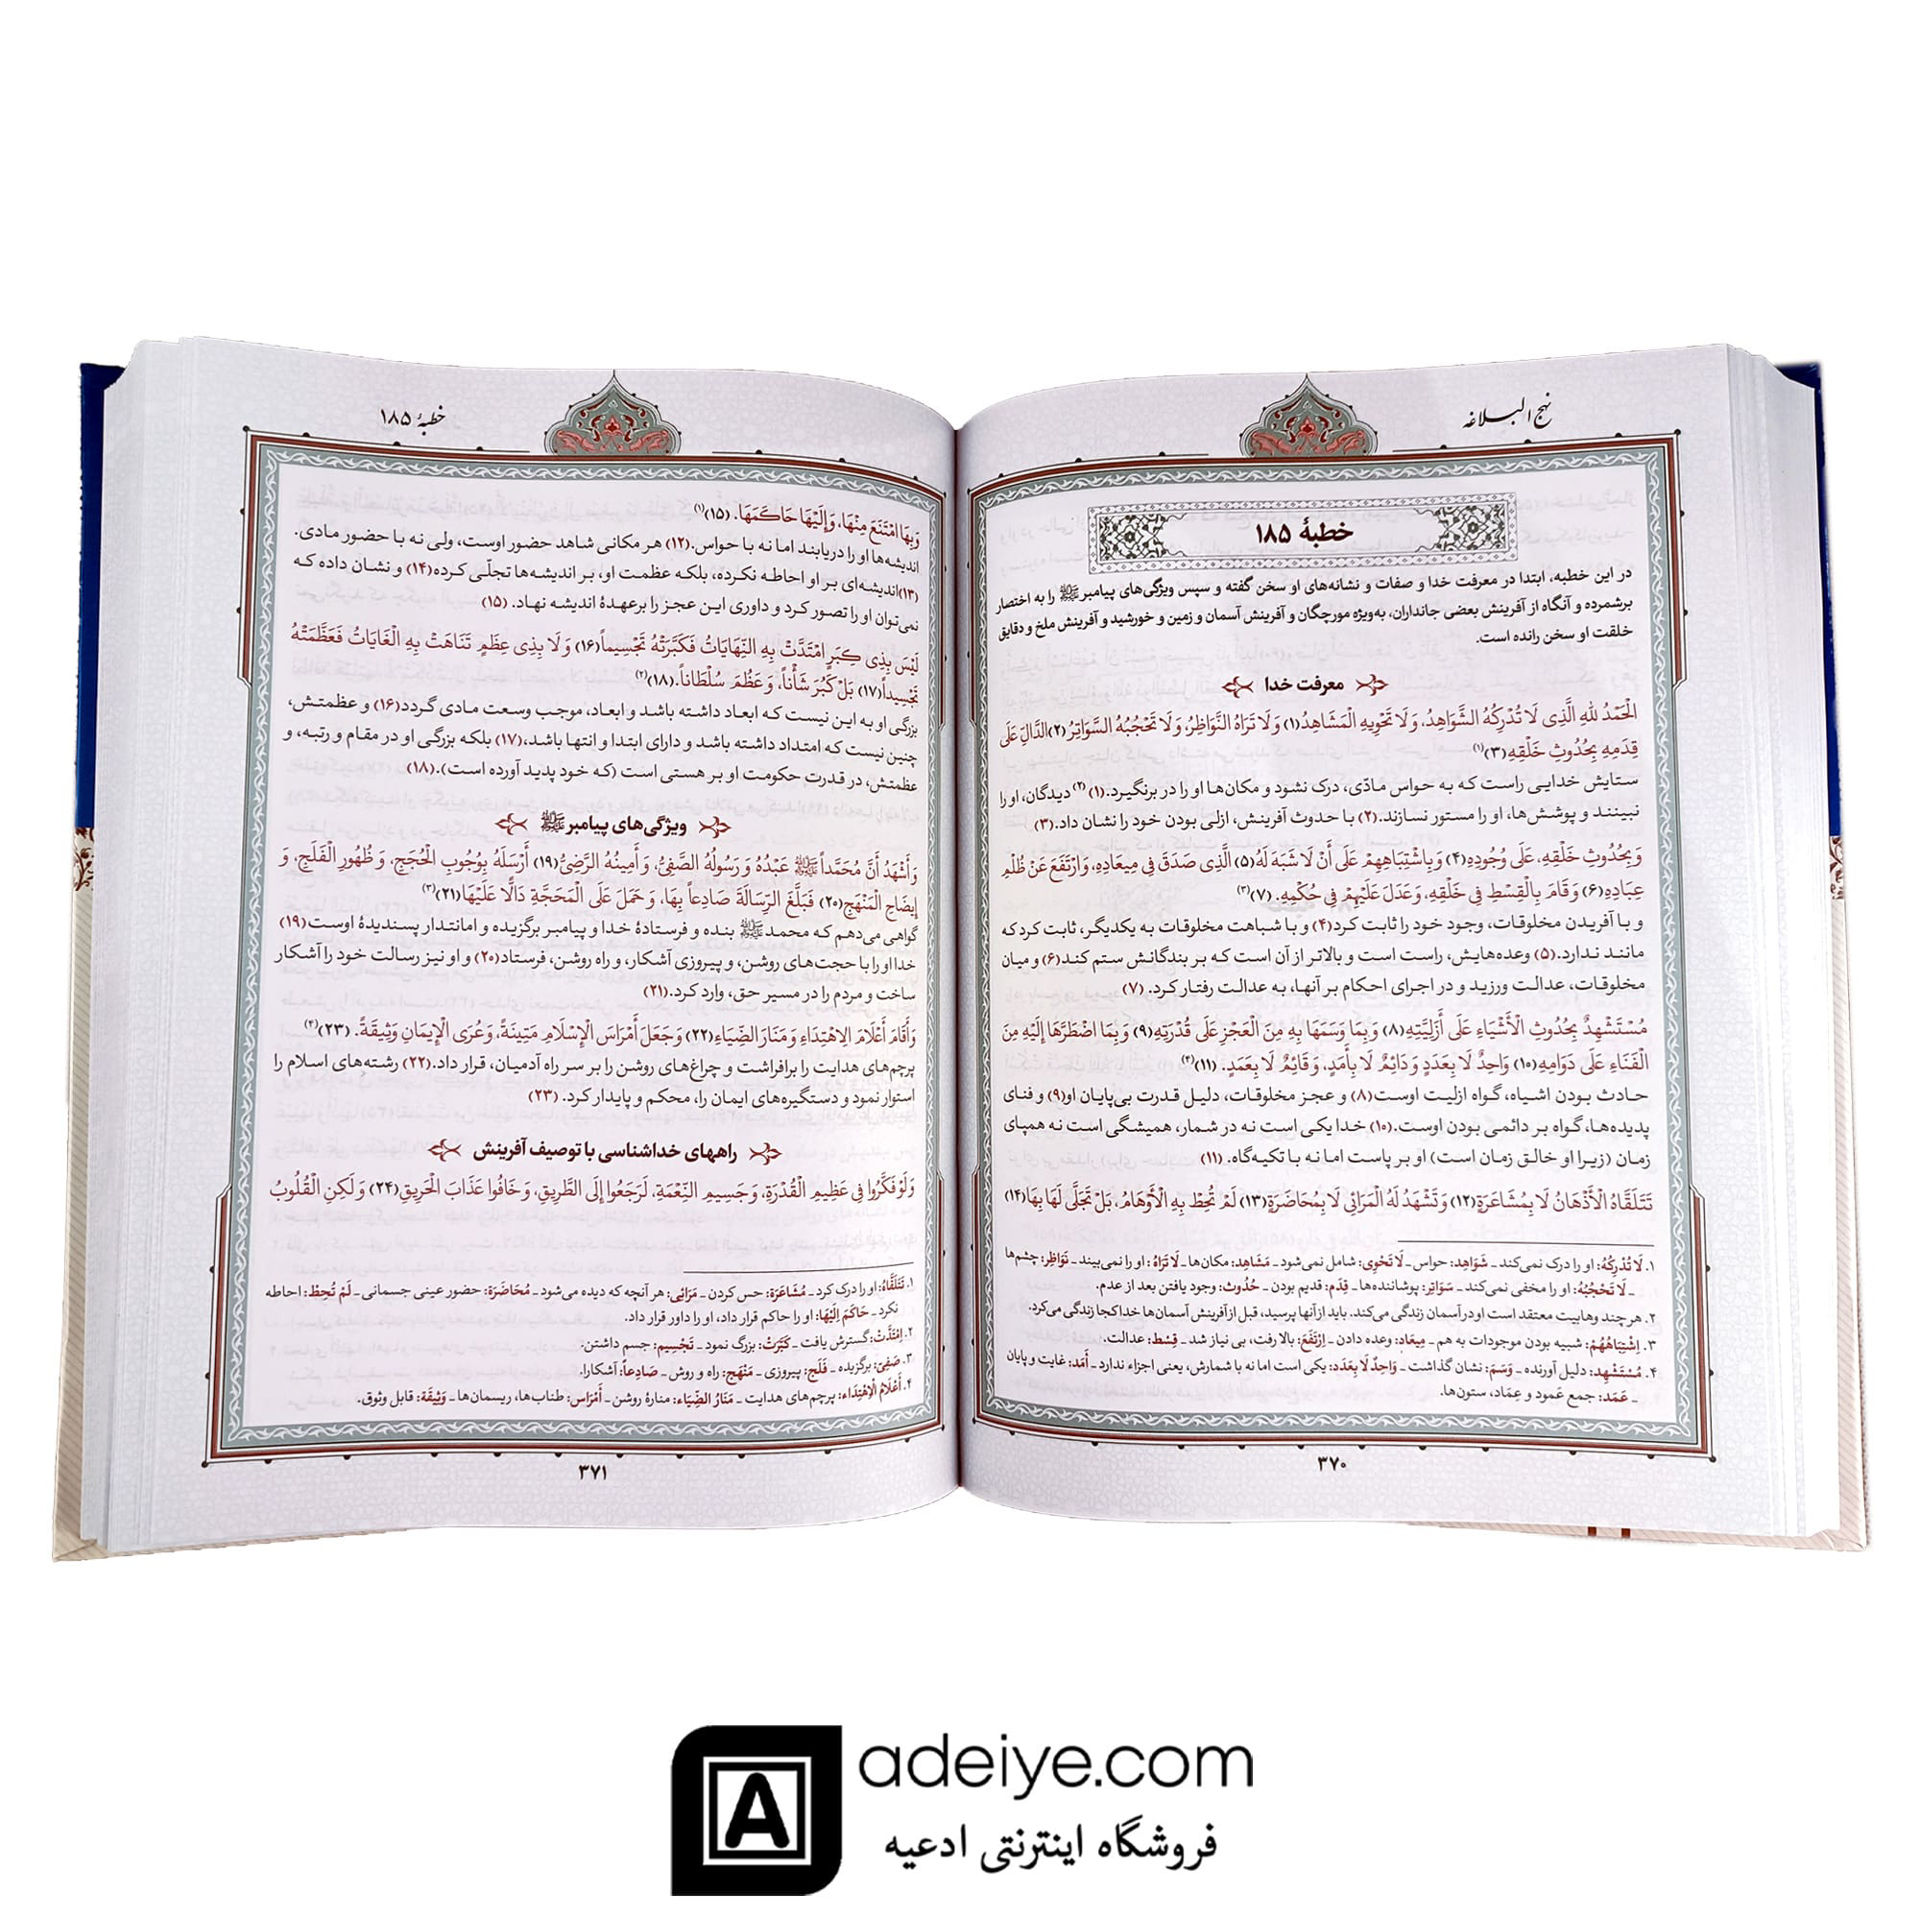 نهج البلاغه
خطبهٔ ۱۸۵
در این خطبه، ابتدا در معرفت خدا و صفات و نشانه‌های او سخن گفته و سپس ویژگی‌های پیامبر ﷺ را به اختصار
برشمرده و آنگاه از آفرینش بعضی جانداران، به‌ویژه مورچگان و آفرینش آسمان و زمین و خورشید و آفرینش ملخ و دقایق
خلقت او سخن رانده است.
معرفت خدا
الْحَمْدُ للهِ الَّذِی لَا تُدْرِکُهُ الشَّوَاهِدُ، وَ لَا تَحْوِیهِ الْمَشَاهِدُ(۱) وَ لَا تَرَاهُ النَّوَاظِرُ، وَ لَا تَحْجُبُهُ السَّوَاتِرُ(۲)الدَّالِّ عَلَی
قِدَمِهِ بِحُدُوثِ خَلْقِهِ(۳)(۱)
ستایش خدایی راست که به حواس مادّی، درک نشود و مکان‌ها او را در برنگیرد.(۱)(۲) دیدگان، او را
نبینند و پوشش‌ها، او را مستور نسازند.(۲) با حدوث آفرینش، ازلی بودن خود را نشان داد.(۳)
وَ بِحُدُوثِ خَلْقِهِ، عَلَی وُجُودِهِ(۴) وَ بِاشْتِبَاهِهِمْ عَلَی أَنْ لَا شَبَهَ لَهُ(۵) الَّذِی صَدَقَ فِی مِیعَادِهِ، وَارْتَفَعَ عَنْ ظُلْمِ
عِبَادِهِ(۶) وَ قَامَ بِالْقِسْطِ فِی خَلْقِهِ، وَ عَدَلَ عَلَیْهِمْ فِی حُکْمِهِ. (۷)(۳)
و با آفریدن مخلوقات، وجود خود را ثابت کرد(۴) و با شباهت مخلوقات به یکدیگر، ثابت کرد که
مانند ندارد.(۵) وعده‌هایش، راست است و بالاتر از آن است که بر بندگانش ستم کند(۶) و میان
مخلوقات، عدالت ورزید و در اجرای احکام بر آنها، به عدالت رفتار کرد. (۷)
مُسْتَشْهِدٌ بِحُدُوثِ الْأَشْیَاءِ عَلَی أَزَلِیَّتِهِ(۸) وَ بِمَا وَسَمَهَا بِهِ مِنَ الْعَجْزِ عَلَی قُدْرَتِهِ(۹) وَ بِمَا اضْطَرَّهَا إِلَیْهِ مِنَ
الْفَنَاءِ عَلَی دَوَامِهِ(۱۰) وَاحِدٌ لَا بِعَدَدٍ وَ دَائِمٌ لَا بِأَمَدٍ، وَ قَائِمٌ لَا بِعَمَدٍ. (۱۱)(۴)
حادث بودن اشیاء، گواه ازلیت اوست(۸) و عجز مخلوقات، دلیل قدرت بی‌پایان او(۹) و فنای
پدیده‌ها، گواه بر دائمی بودن اوست.(۱۰) خدا یکی است نه در شمار، همیشگی است نه همپای
زمان (زیرا او خالق زمان است) او بر پاست اما نه با تکیه‌گاه. (۱۱)
تَتَلَقَّاهُ الْأَذْهَانُ لَا بِمُشَاعَرَةٍ(۱۲) وَ تَشْهَدُ لَهُ الْمَرَائِی لَا بِمُحَاضَرَةٍ(۱۳) لَمْ تُحِطْ بِهِ الْأَوْهَامُ، بَلْ تَجَلَّی لَهَا بِهَا(۱۴)
۱. لَا تُدْرِکُهُ: او را درک نمی‌کند ـ شَوَاهِد: حواس ـ لَا تَحْوِی: شامل نمی‌شود ـ مَشَاهِد: مکان‌ها ـ لَا تَرَاهُ: او را نمی‌بیند ـ نَوَاظِر: چشم‌ها
ـ لَا تَحْجُبُهُ: او را مخفی نمی‌کند ـ سَوَاتِر: پوشاننده‌ها ـ قِدَم: قدیم بودن ـ حُدُوث: وجود یافتن بعد از عدم.
۲. هر چند وهابیت معتقد است او در آسمان زندگی می‌کند. باید از آنها پرسید، قبل از آفرینش آسمان‌ها خدا کجا زندگی می‌کرد.
۳. اِشْتِبَاهُهُمْ: شبیه بودن موجودات به هم ـ مِیعَاد: وعده دادن ـ اِرْتَفَعَ: بالا رفت، بی نیاز شد ـ قِسْط: عدالت.
۴. مُسْتَشْهِد: دلیل آورنده ـ وَسَمَ: نشان گذاشت ـ وَاحِدٌ لَا بِعَدَد: یکی است اما نه با شمارش، یعنی اجزاء ندارد ـ أَمَد: غایت و پایان
ـ عَمَد: جمع عَمود و عِمَاد، ستون‌ها.
۳۷۰
خطبهٔ ۱۸۵
وَ بِهَا امْتَنَعَ مِنْهَا، وَ إِلَیْهَا حَاکَمَهَا. (۱۵)(۱)
اندیشه‌ها او را دریابند اما نه با حواس.(۱۲) هر مکانی شاهد حضور اوست، ولی نه با حضور مادی.
(۱۳)اندیشه‌ای بر او احاطه نکرده، بلکه عظمت او، بر اندیشه‌ها تجلّی کرده(۱۴) و نشان داده که
نمی‌توان او را تصور کرد و داوری این عجز را برعهدهٔ اندیشه نهاد. (۱۵)
لَیْسَ بِذِی کِبَرٍ امْتَدَّتْ بِهِ النِّهَایَاتُ فَکَبَّرَتْهُ تَجْسِیماً(۱۶) وَ لَا بِذِی عِظَمٍ تَنَاهَتْ بِهِ الْغَایَاتُ فَعَظَّمَتْهُ
تَجْسِیداً(۱۷) بَلْ کَبُرَ شَأْناً، وَ عَظُمَ سُلْطَاناً.(۱۸)(۲)
بزرگی او به این نیست که ابعاد داشته باشد و ابعاد، موجب وسعت مادی گردد(۱۶) و عظمتش،
چنین نیست که امتداد داشته باشد و دارای ابتدا و انتها باشد،(۱۷) بلکه بزرگی او در مقام و رتبه، و
عظمتش، در قدرت حکومت او بر هستی است (که خود پدید آورده است). (۱۸)
ویژگی‌های پیامبر ﷺ
وَ أَشْهَدُ أَنَّ مُحَمَّداً ﷺ عَبْدُهُ وَ رَسُولُهُ الصَّفِیُّ، وَ أَمِینُهُ الرَّضِیُّ(۱۹) أَرْسَلَهُ بِوُجُوبِ الْحُجَجِ، وَ ظُهُورِ الْفَلَجِ، وَ
إِیضَاحِ الْمَنْهَجِ(۲۰) فَبَلَّغَ الرِّسَالَةَ صَادِعاً بِهَا، وَ حَمَلَ عَلَی الْمَحَجَّةِ دَالًّا عَلَیْهَا(۲۱)(۳)
گواهی می‌دهم که محمد ﷺ بنده و فرستادهٔ خدا و پیامبر برگزیده و امانتدار پسندیدهٔ اوست(۱۹)
خدا او را با حجت‌های روشن، و پیروزی آشکار، و راه روشن، فرستاد(۲۰) و او نیز رسالت خود را آشکار
ساخت و مردم را در مسیر حق، وارد کرد. (۲۱)
وَ أَقَامَ أَعْلَامَ الِاهْتِدَاءِ وَ مَنَارَ الضِّیَاءِ(۲۲) وَ جَعَلَ أَمْرَاسَ الْإِسْلَامِ مَتِینَةً، وَ عُرَی الْإِیمَانِ وَثِیقَةً. (۲۳)(۴)
پرچم‌های هدایت را برافراشت و چراغ‌های روشن را بر سر راه آدمیان، قرار داد. (۲۲) رشته‌های اسلام را
استوار نمود و دستگیره‌های ایمان را، محکم و پایدار کرد. (۲۳)
راههای خداشناسی با توصیف آفرینش
وَ لَوْ فَکَّرُوا فِی عَظِیمِ الْقُدْرَةِ، وَ جَسِیمِ النِّعْمَةِ، لَرَجَعُوا إِلَی الطَّرِیقِ، وَ خَافُوا عَذَابَ الْحَرِیقِ(۲۴) وَ لَکِنِ الْقُلُوبُ
۱. تَتَلَقَّاهُ: او را درک کرد ـ مُشَاعَرَة: حس کردن ـ مَرَائِی: هر آنچه که دیده می‌شود ـ مُحَاضَرَة: حضور عینی جسمانی ـ لَمْ تُحِطْ: احاطه
نکرد ـ حَاکَمَ إِلَیْهَا: او را حاکم قرار داد، او را داور قرار داد.
۲. اِمْتَدَّتْ: گسترش یافت ـ کَبَّرَتْ: بزرگ نمود ـ تَجْسِیم: جسم داشتن.
۳. صَفِیّ: برگزیده ـ فَلَج: پیروزی ـ مَنْهَج: راه و روش ـ صَادِعاً: آشکارا.
۴. أَعْلَامُ الْاِهْتِدَاء: پرچم‌های هدایت ـ مَنَارُ الضِّیَاء: منارهٔ روشن ـ أَمْرَاس: طناب‌ها، ریسمان‌ها ـ وَثِیقَة: قابل وثوق.
۳۷۱
adeiye.com
فروشگاه اینترنتی ادعیه
A